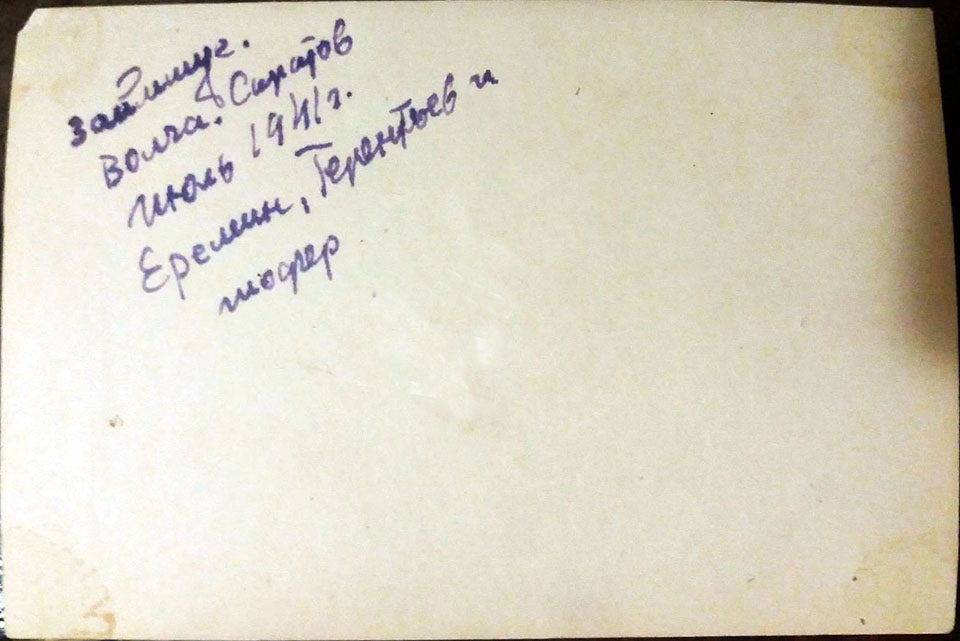 Волга. Саратов
июль 1941 г.
Еремин, Терентьев и
шофер